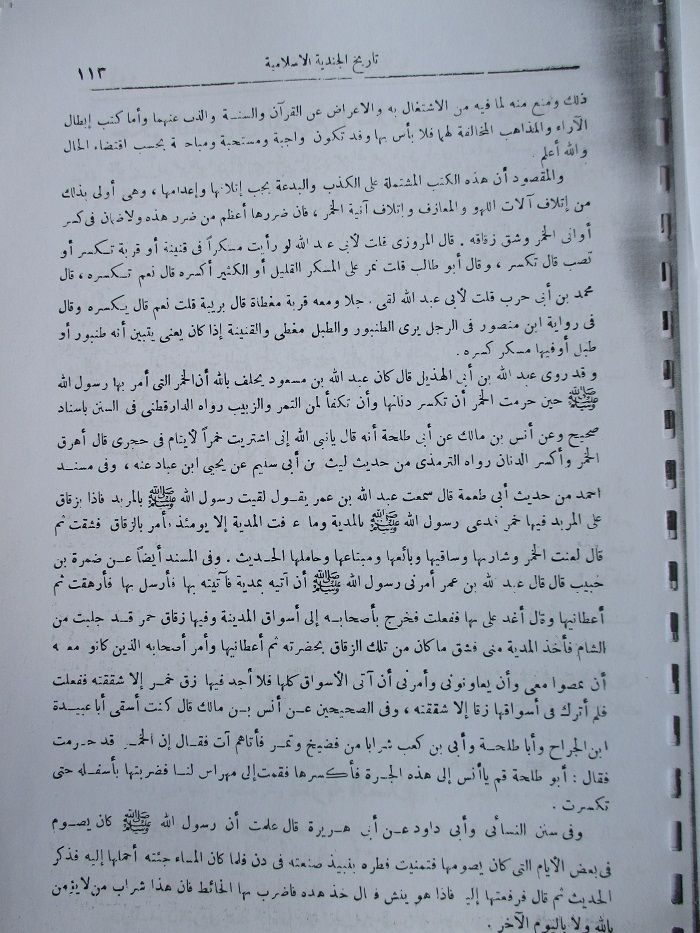 تاريخ الجندية الاسلامية ١١٣
ذلك ومنع منه لما فيه من الاشتغال به والاعراض عن القرآن والسنة والذب عنهما وأما كتب إبطال
الآراء والمذاهب المخالفة لهما فلا بأس بها وقد تكون واجبة ومستحبة ومباحة بحسب اقتضاء الحال
والله أعلم .
والمقصود أن هذه الكتب المشتملة على الكذب والبدعة يجب إتلافها وإعدامها ، وهى أولى بذلك
من إتلاف آلات اللهو والمعازف وإتلاف آنية الخمر ، فان ضررها أعظم من ضرر هذه ولاضمان فى كسر
أوانى الخمر وشق زقاقه . قال المروزى قلت لأبى عبد الله لو رأيت مسكراً فى قنينة أو قربة تكسر أو
تصب قال تكسر ، وقال أبو طالب قلت نمر على المسكر القليل أو الكثير أكسره قال نعم تكسره ، قال
محمد بن أبى حرب قلت لأبى عبد الله لقى . جلا ومعه قربة مغطاة قال بريبة قلت نعم قال يكسره وقال
فى رواية ابن منصور فى الرجل يرى الطنبور والطبل مغطى والقنينة إذا كان يعنى يتبين أنه طنبور أو
طبل أوفيها مسكر كسره .
و قد روى عبد الله بن أبى الهذيل قال كان عبد الله بن مسعود يحلف بالله أن الخمر التى أمر بها رسول الله
ﷺ حين حرمت الخمر أن تكسر دنانها وأن تكفأ لمن التمر والزبيب رواه الدارقطنى فى السنن باسناد
صحيح وعن أنس بن مالك عن أبى طلحة أنه قال يانبى الله إنى اشتريت خمراً لأيتام فى حجرى قال أهرق
الخمر وأكسر الدنان رواه الترمذى من حديث ليث بن أبى سليم عن يحيى ابن عباد عنه ، وفى مسند
احمد من حديث أبى طعمة قال سمعت عبد الله بن عمر يقول لقيت رسول الله ﷺ بالمربد فاذا بزقاق
على المربد فيها خمر فدعى رسول الله ﷺ بالمدية وما ء فت المدية إلا يومئذ فأمر بالزقاق فشقت ثم
قال لعنت الخمر وشاربها وساقيها وبائعها ومبتاعها وحاملها الحديث . وفى المسند أيضاً عن ضمرة بن
حبيب قال قال عبد لله بن عمر أمرنى رسول الله ﷺ أن آتيه بمدية فآتيته بها فأرسل بها فأرهفت ثم
أعطانيها وقال أغد على بها ففعلت فخرج بأصحابه إلى أسواق المدينة وفيها زقاق خمر قد جلبت من
الشام فأخذ المدية منى فشق ما كان من تلك الزقاق بحضرته ثم أعطانيها وأمر أصحابه الذين كانو معه
أن يمضوا معى وأن يعاونونى وأمرنى أن آتى الأسواق كلها فلا أجد فيها زق خمر إلا شققته ففعلت
فلم أترك فى أسواقها زقا إلا شققته ، وفى الصحيحين عن أنس بن مالك قال كنت أسقى أباعبيدة
ابن الجراح وأبا طلحة وأبى بن كعب شرابا من فضيخ وتمر فأتاهم آت فقال إن الخمر قد حرمت
فقال : أبو طلحة قم ياأنس إلى هذه الجرة فأكسرها فقمت إلى مهراس لنا فضربتها بأسفله حتى
تكسرت .
وفى سنن النسائى وأبى داود عن أبى هريرة قال علمت أن رسول الله ﷺ كان يصوم
فى بعض الأيام التى كان يصومها فتمنيت فطره بنبيذ صنعته فى دن فلما كان المساء جئته أحملها إليه فذكر
الحديث ثم قال فرفعتها إليه فاذا هو ينش ف ال خذ هده فاضرب بها الحائط فان هذا شراب من لايؤمن
بالله ولا باليوم الآخر .